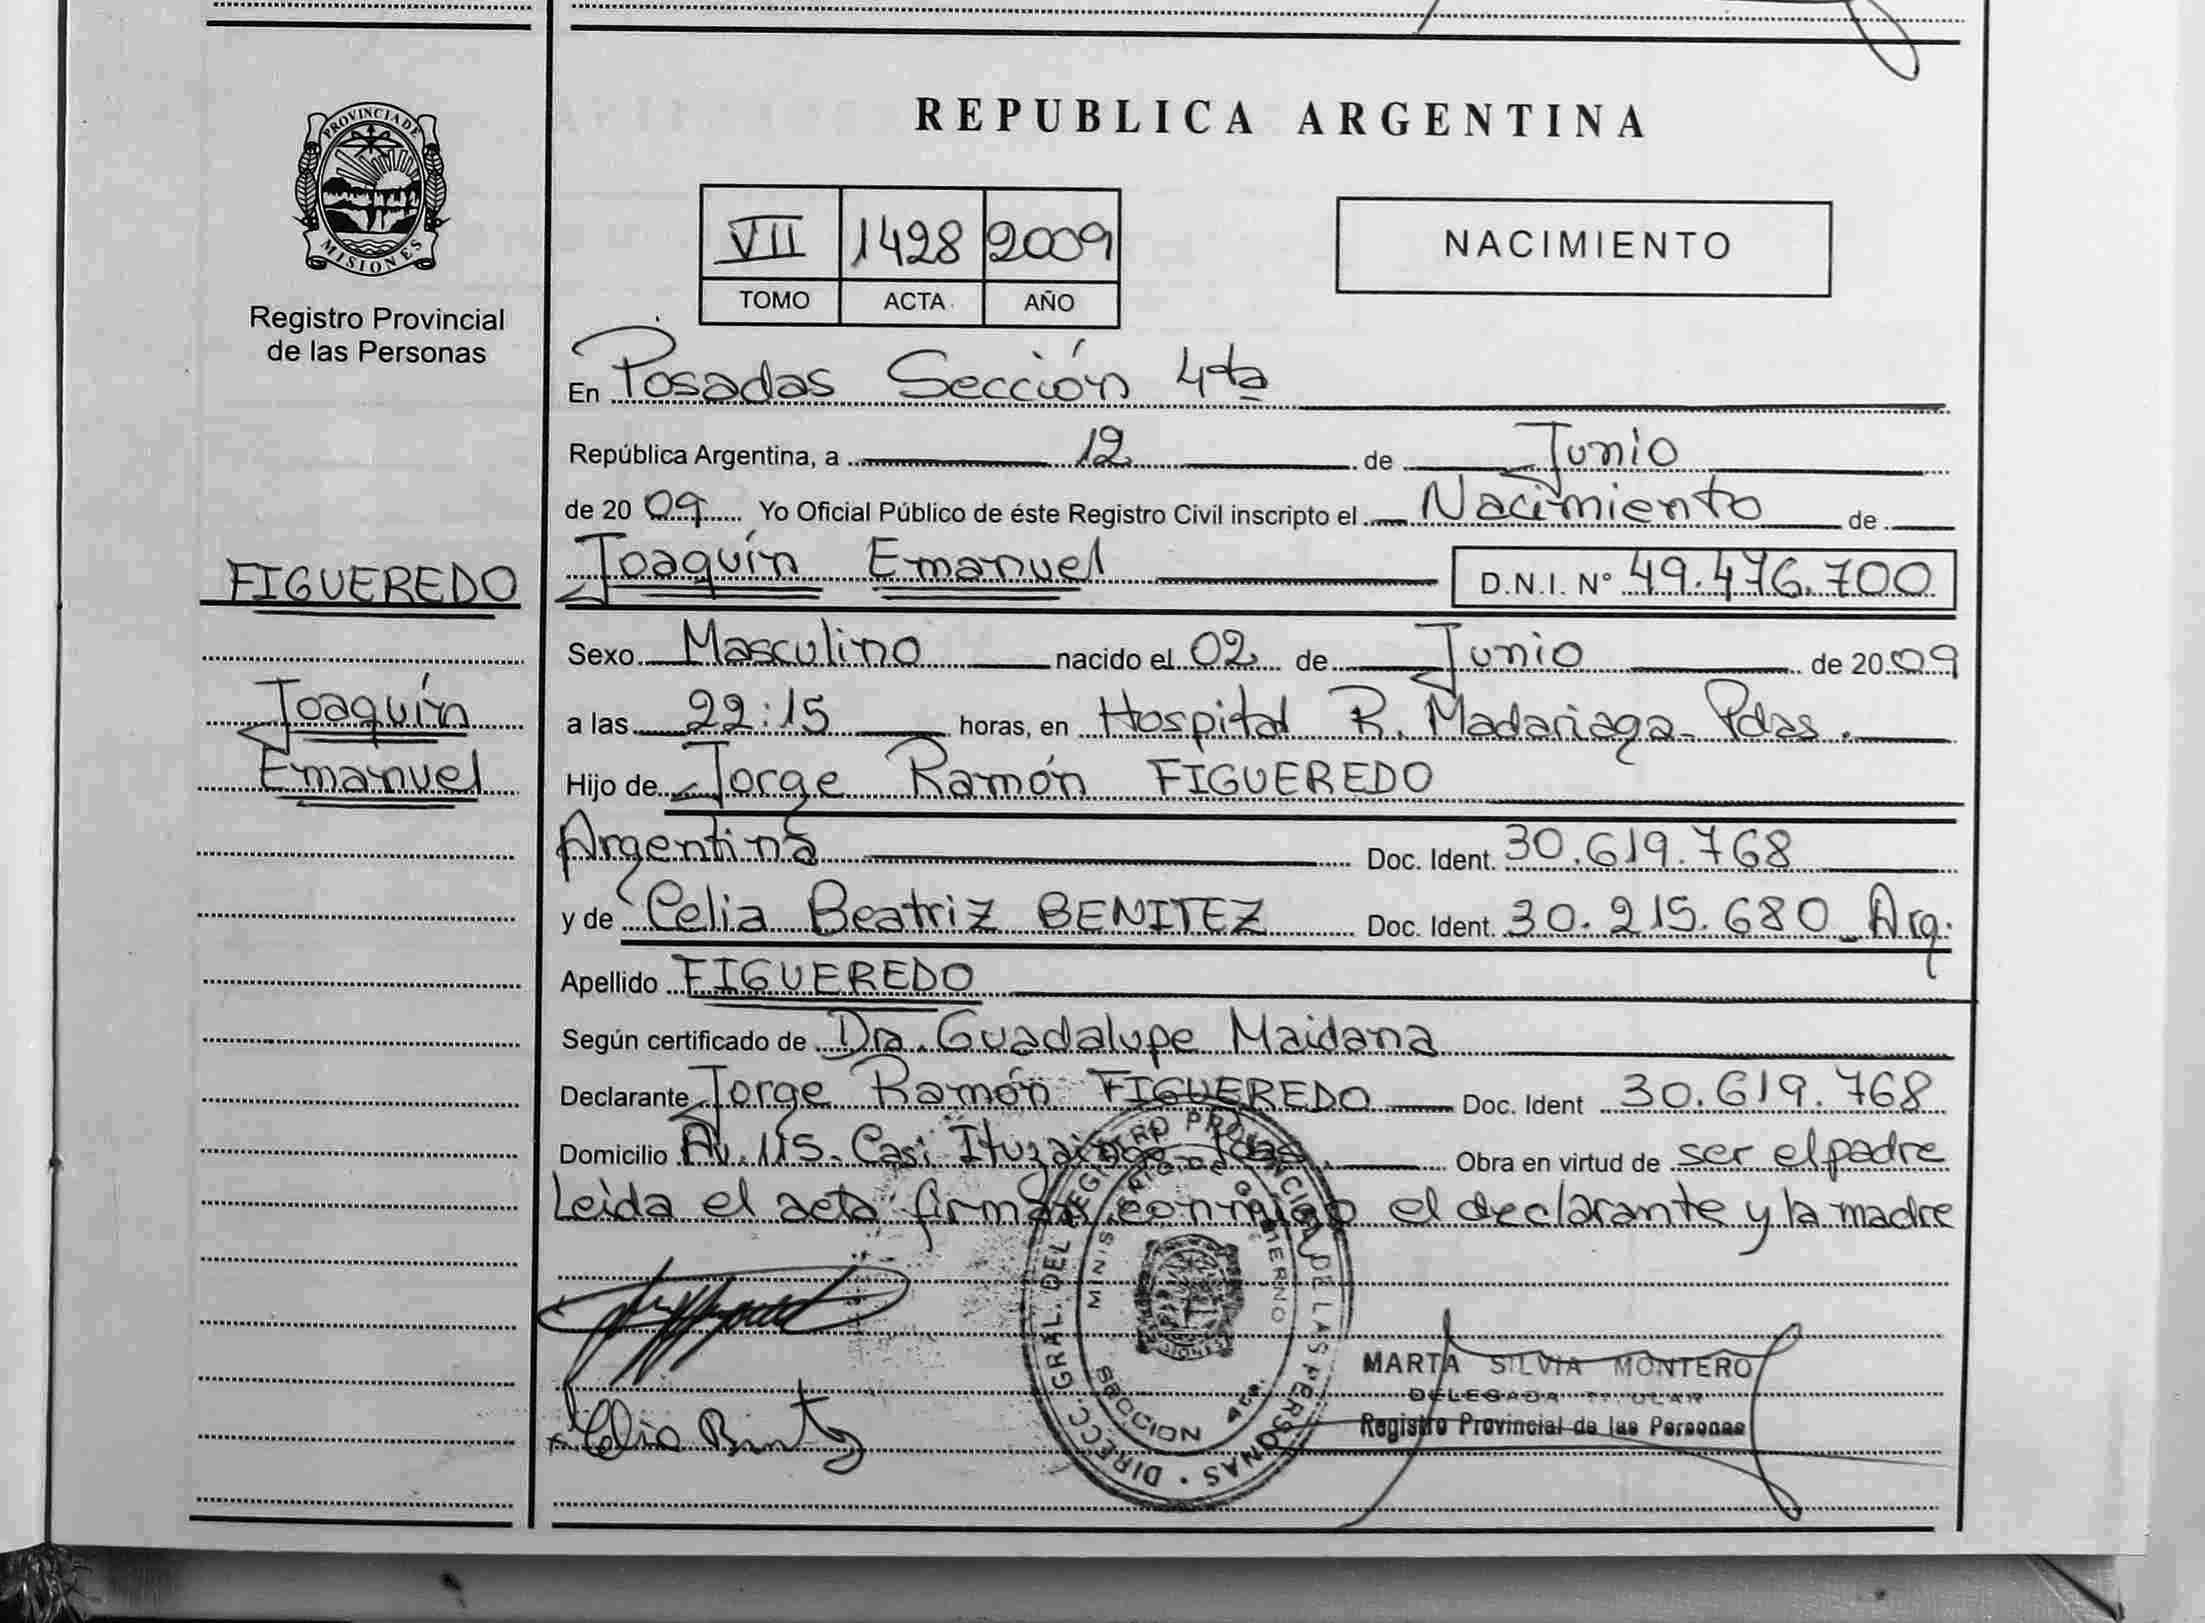 PROVINCIA DE
MISIONES
Registro Provincial
de las Personas
FIGUEREDO
Joaquín
Emanuel
REPUBLICA ARGENTINA
VII 1428 2009
TOMO ACTA AÑO
NACIMIENTO
En Posadas Sección 4ta
República Argentina, a 12 de Junio
de 2009 Yo Oficial Público de éste Registro Civil inscripto el Nacimiento de
Joaquín Emanuel D.N.I. Nº 49.476.700
Sexo Masculino nacido el 02 de Junio de 2009
a las 22:15 horas, en Hospital R. Madariaga - Pdas.
Hijo de Jorge Ramón FIGUEREDO
Argentina Doc. Ident. 30.619.768
y de Celia Beatriz BENITEZ Doc. Ident. 30.215.680 - Arg.
Apellido FIGUEREDO
Según certificado de Dra. Guadalupe Maidana
Declarante Jorge Ramón FIGUEREDO Doc. Ident 30.619.768
Domicilio Av. 115 - Casi Ituzaingo - Pdas. Obra en virtud de ser el padre
Leida el acta firman conmigo el declarante y la madre
DIRECC. GRAL. DEL REGISTRO PROVINCIAL DE LAS PERSONAS
MINISTERIO DE GOBIERNO
SECCION 4ta.
MARTA SILVIA MONTERO
DELEGADA TITULAR
Registro Provincial de las Personas